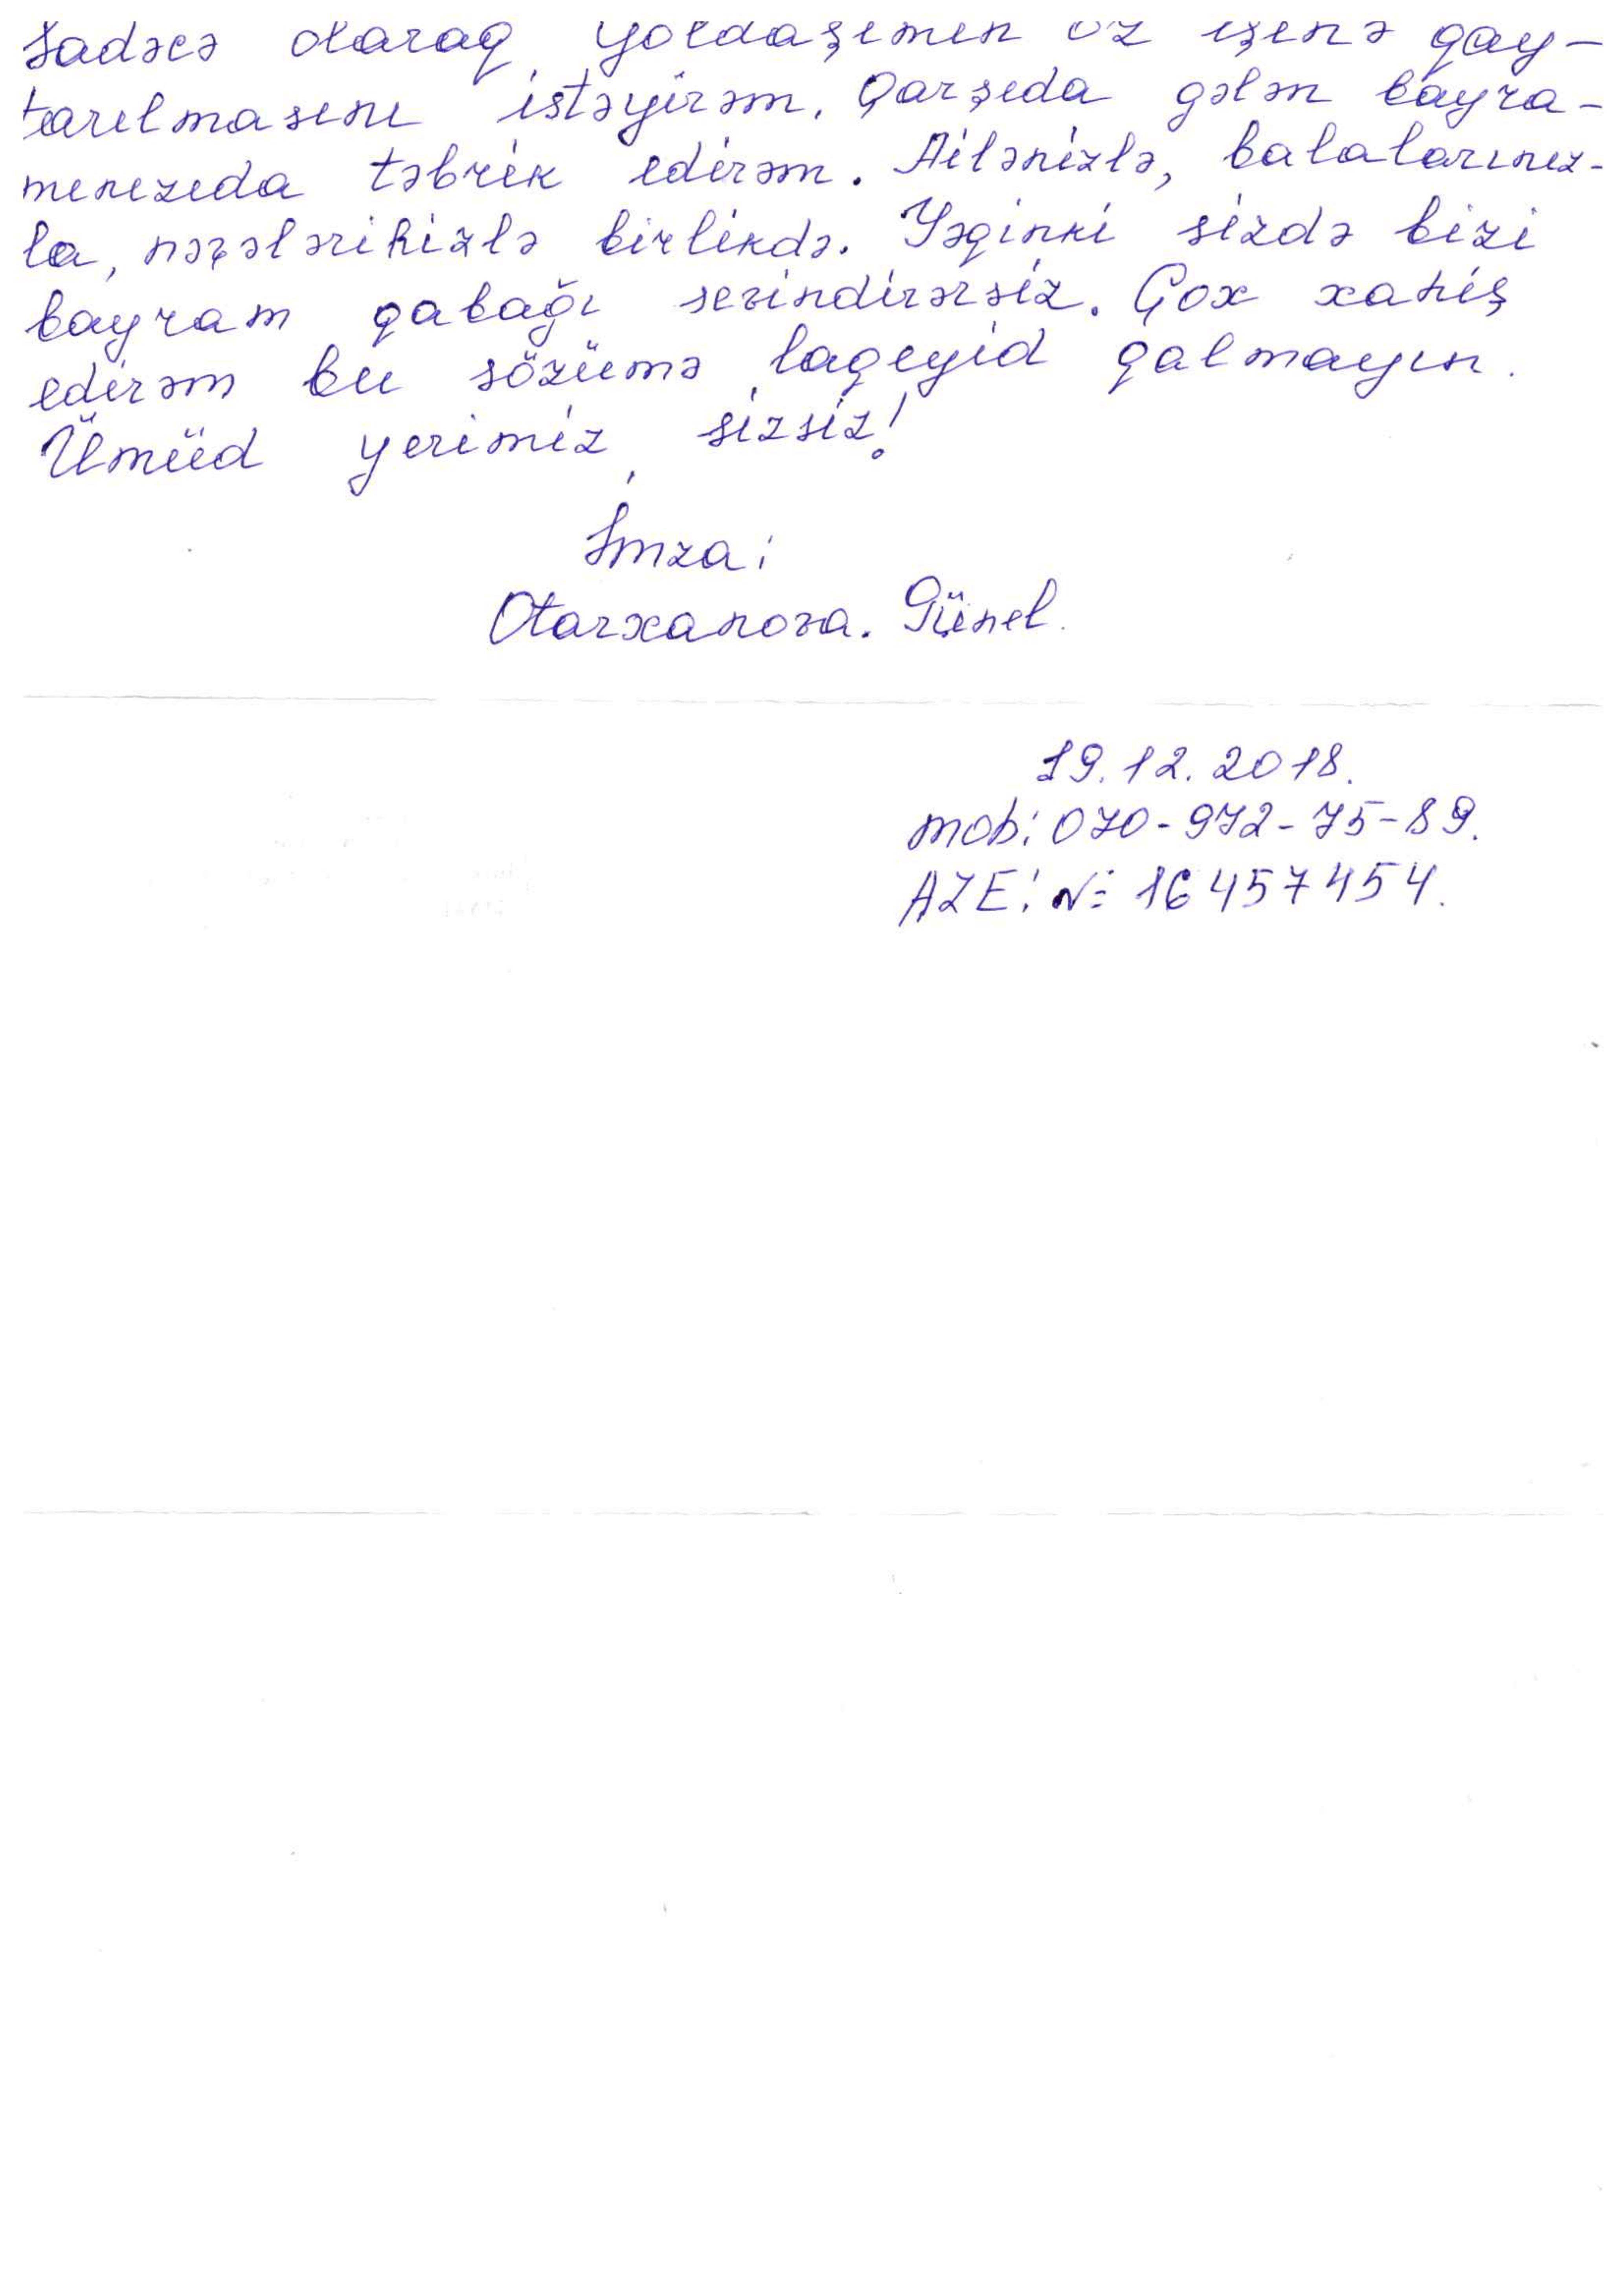 Sadəcə olaraq yoldaşımın öz işinə qay-
tarılmasını istəyirəm. Qarşıda gələn bayra-
mınızıda təbrik edirəm. Ailənizlə, balalarınız-
la, nəvələrinizlə birlikdə. Yəqinki sizdə bizi
bayram qabağı sevindirərsiz. Çox xahiş
edirəm bu sözümə laqeyid qalmayın.
Ümüd yerimiz sizsiz!
İmza:
Otarxanova. Günel.
19.12.2018.
mob: 070-972-75-89.
AZE: № 16457454.